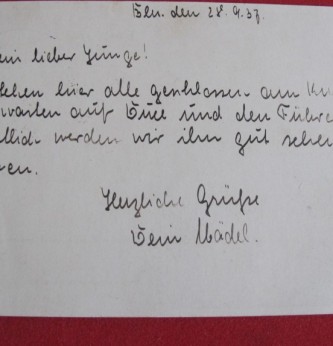 Bln. den 28.9.37.
ein lieber Junge!
stehen hier alle geschlossen am
warten auf Duce und den Führer
tlich werden wir ihn gut sehen
en.
Herzliche Grüße
Dein Mädel.